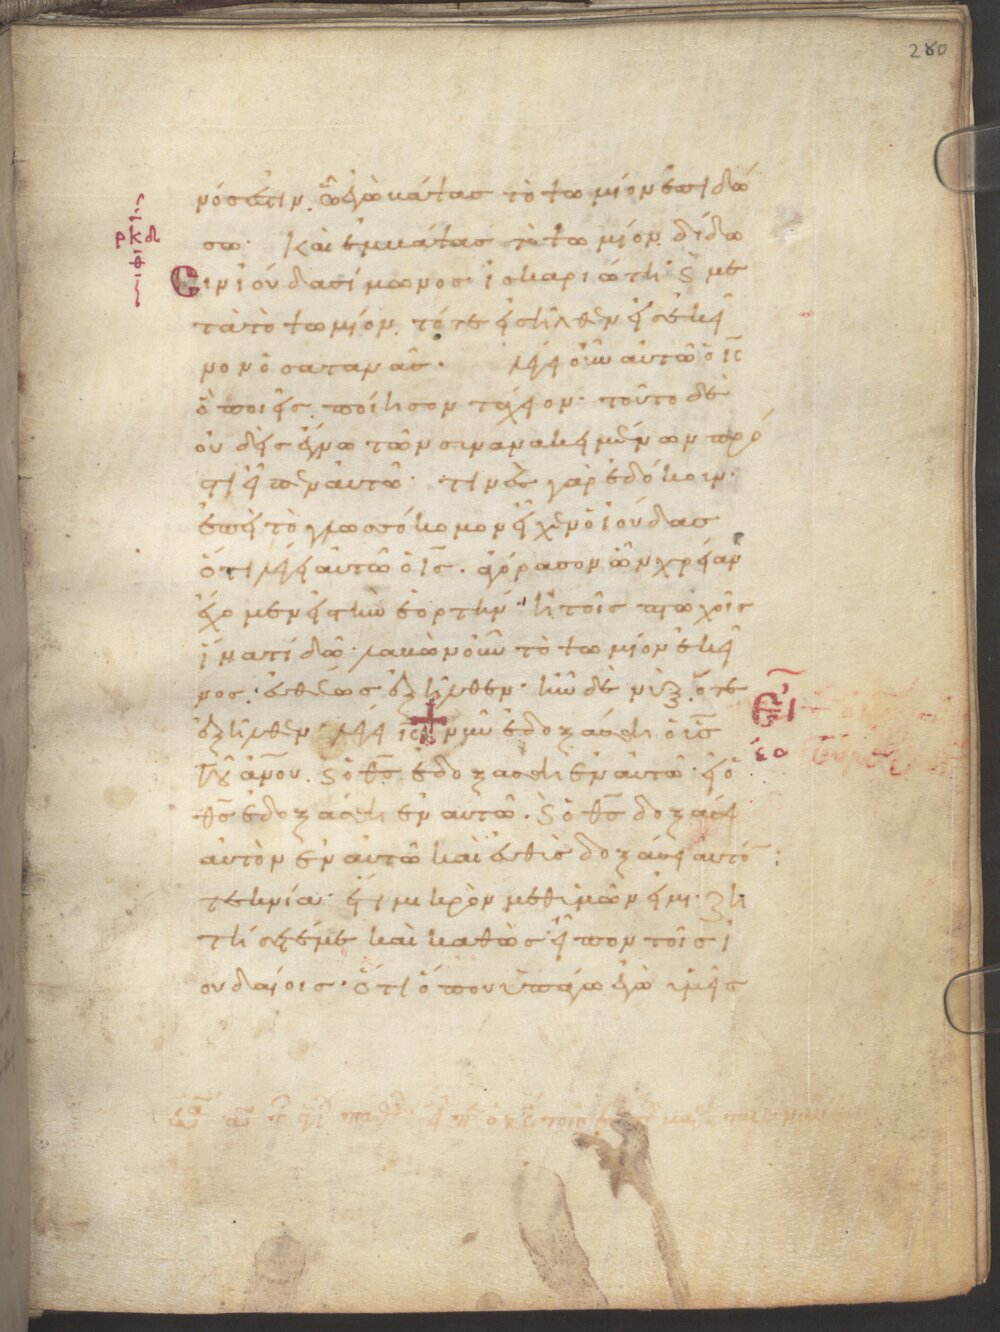 280
νόσἐστιν. ᾧ ἐγὼ κάψας τὸ ψωμίον ἐπιδώ
σω· Καὶ ἐμκάψας τὸ ψωμίον δίδω
ρκδ
θ
Σιν ἰούδα σίμωνος· ἰσκαριώτη· ϛ με
τὰ τὸ ψωμίον. τότε εἰσῆλθεν εἰς ἐκεῖ
νον ὁ σατανᾶς· λέγει οὖν αὐτῶ ὁ ις
ὃ ποιεῖς. ποίησον τάχιον· τοῦτο δὲ
οὐδεὶς ἔγνω τῶν σιναναkειμένων πρό
ς τί εἶπεν αὐτῶ· τινὲς γὰρ ἐδόκουν·
ἐπεὶ τὸ γλωσσόκομον εἶχεν ὁ ἰούδας
ὅτι λέγει αὐτῶ ὁ ις. ἀγόρασον ὧν χρείαν
ἔχομεν εἰς τὴν ἑορτήν· ἢ τοῖς πτωχοῖς
ἵνα τί δῶ· λαβὼν οὖν τὸ ψωμίον ἐκεῖ
νος· εὐθέως ἐξῆλθεν· ἦν δὲ νὺξ. ὅτε
ἐξῆλθεν· λέγει ις νῦν ἐδοξάσθη ὁ ις
ϛ ὁ θς ἐδοξάσθη ἐν αὐτῶ· εἰ ὁ
θς ἐδοξάσθη ἐν αὐτῶ. ϛ ὁ θς δοξάσει
αὐτὸν ἐν αὐτῶ καὶ εὐθὶς δοξάσει αὐτό
τεκνία· ἔτι μικρὸν μεθ ἰμῶν εἰμι· ζη
τήσετέ με καὶ καθὼς εἶπον τοῖς ἰ
ουδαίοις· ὅτι ὅπου ὑπάγω ἐγὼ ἰμεῖς